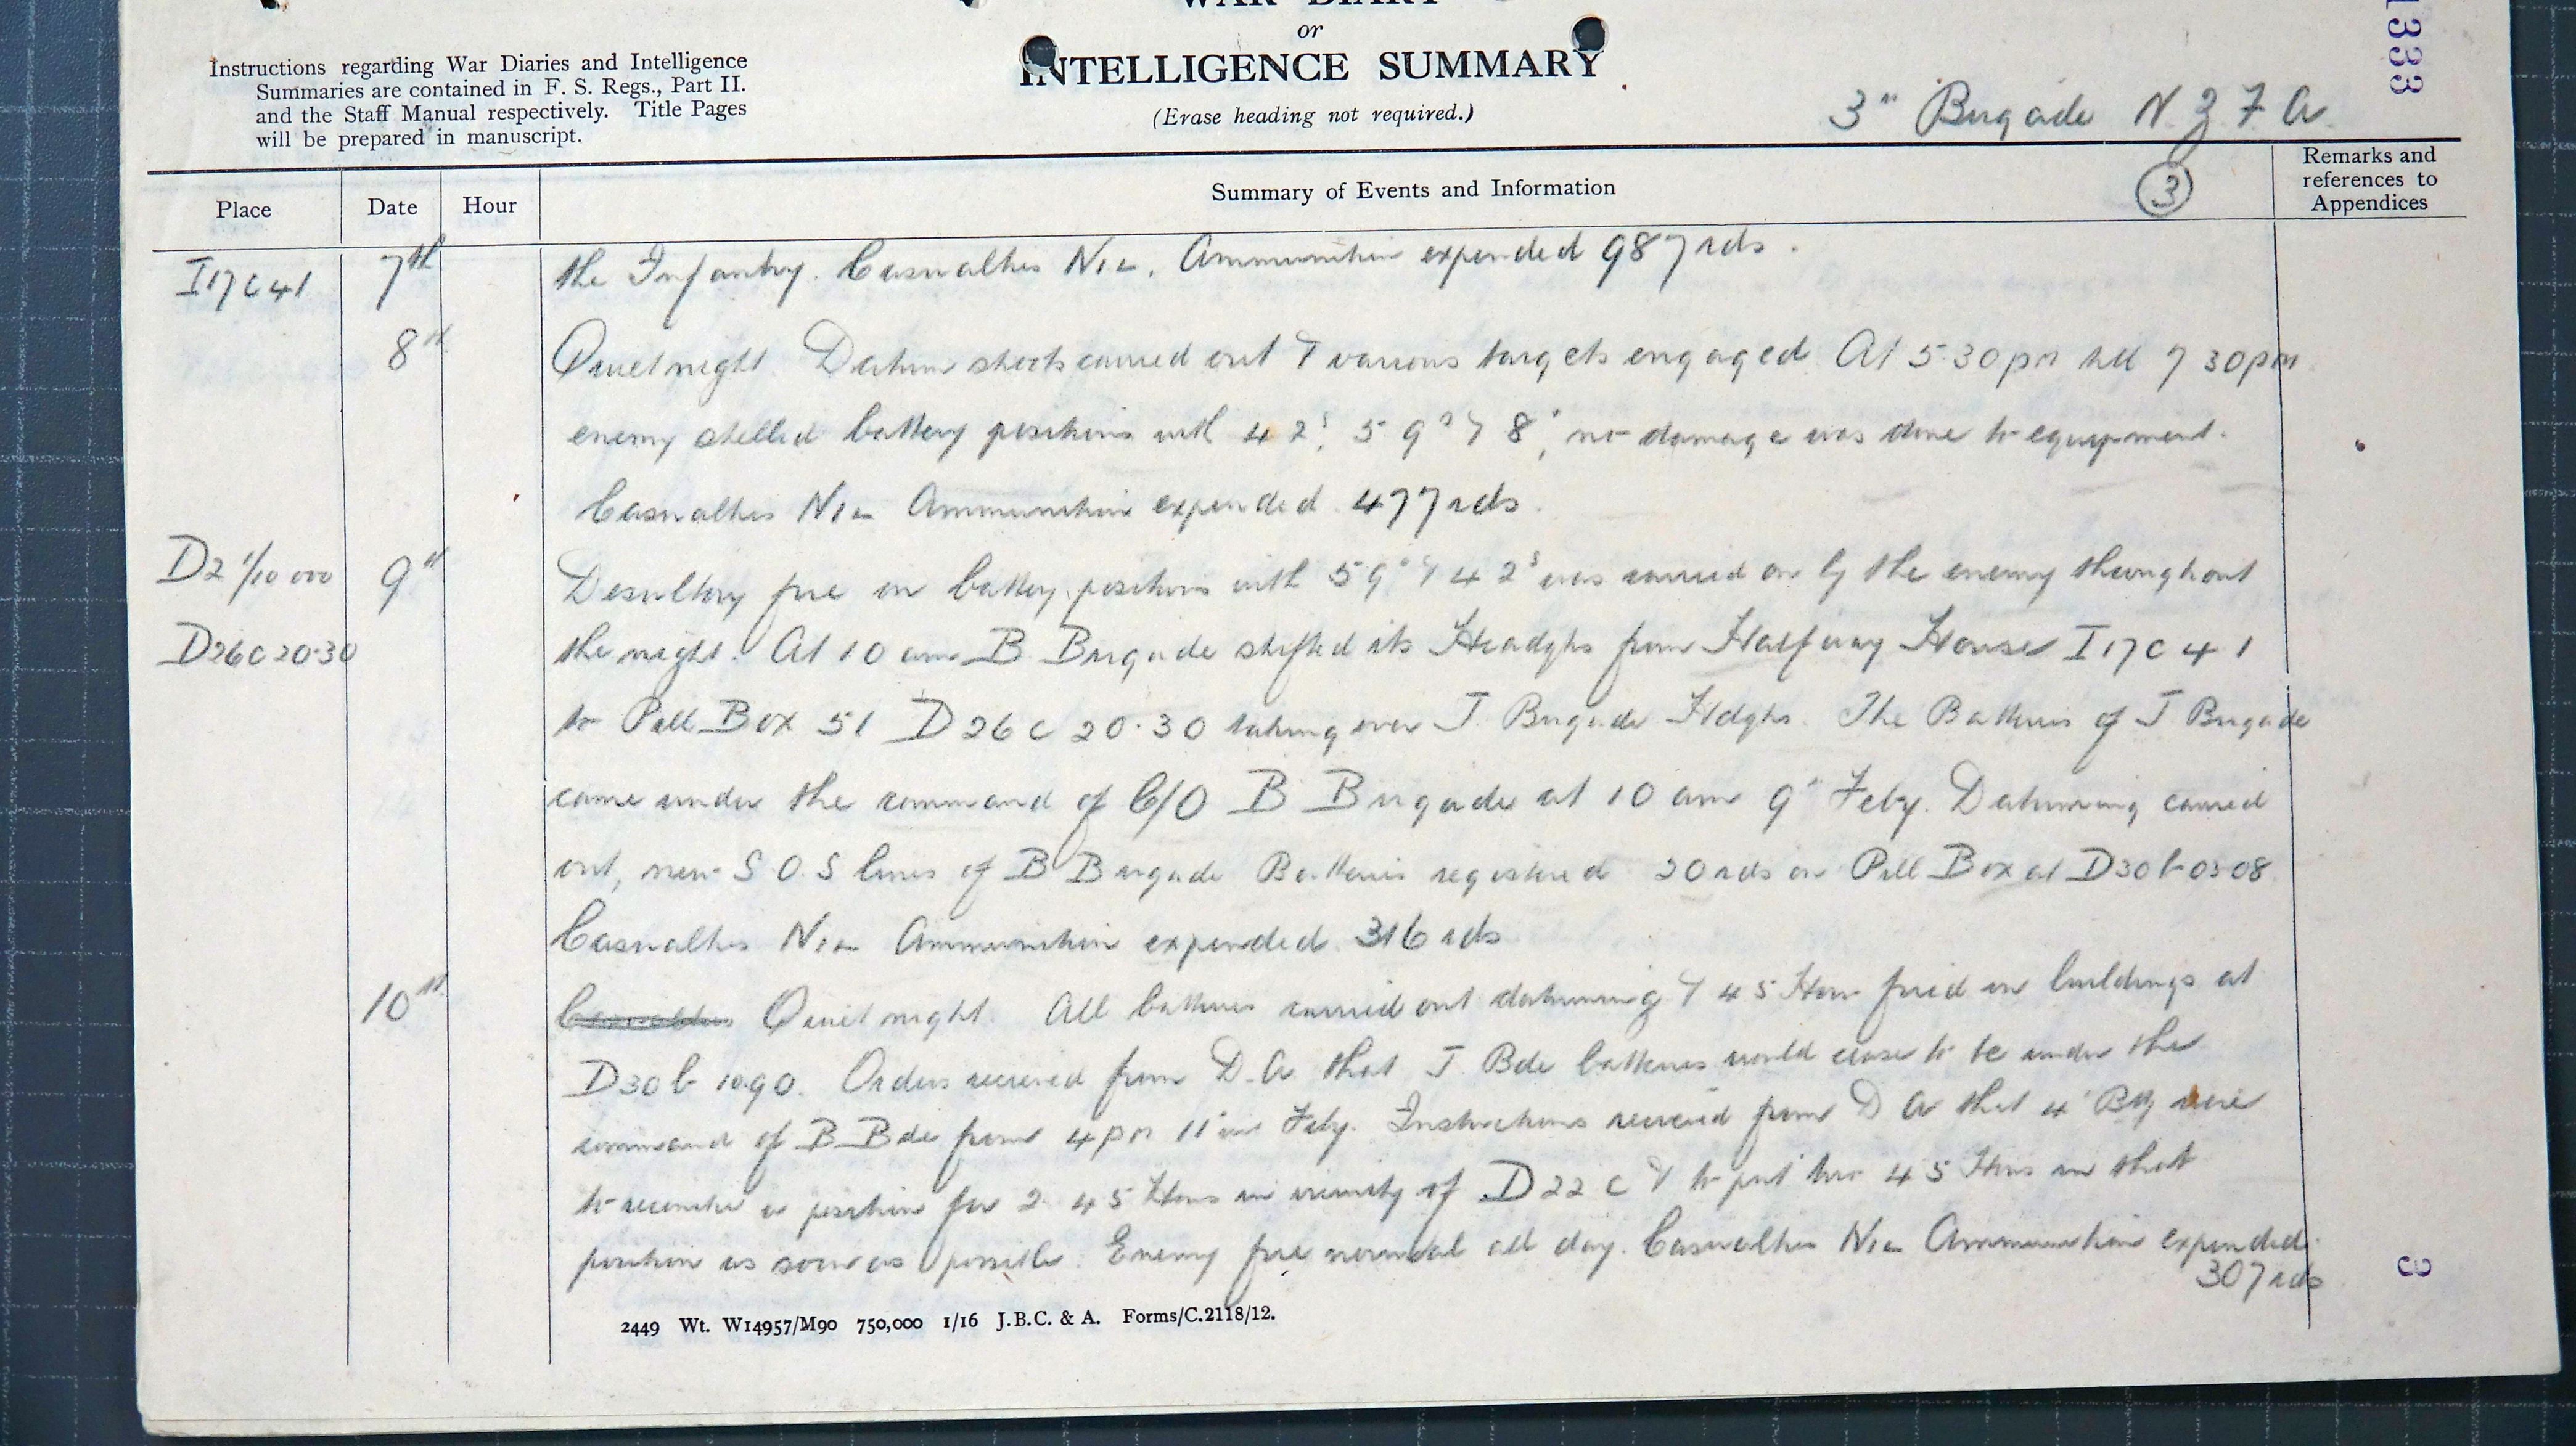 WAR DIARY
or
INTELLIGENCE SUMMARY
(Erase heading not required.)
Instructions regarding War Diaries and Intelligence
Summaries are contained in F. S. Regs., Part II.
and the Staff Manual respectively. Title Pages
will be prepared in manuscript.
1333
3rd Brigade N Z F A
Place
Date
Hour
Summary of Events and Information
3
Remarks and
references to
Appendices
I 17 C 41 7th the Infantry. Casualties NIL. Ammunition expended 987 rds.
8th Quiet night. Datum shoots carried out & various targets engaged. At 5·30 pm till 7 30 pm
enemy shelled battery positions with 4 2s, 5 9s & 8", no damage was done to equipment.
Casualties NIL Ammunition expended 477 rds.
D2 1/10 000 9th Desultory fire on battery positions with 5 9s & 4 2s was carried on by the enemy throughout
D26C 20·30 the night. At 10 am B Brigade shifted its Headqrs from Halfway House I 17 C 4 1
to Pill Box 51 D 26 C 20·30 taking over J. Brigade Hdqrs. The Batteries of J Brigade
came under the command of C/O B Brigade at 10 am 9th Feby. Datuming carried
out, new S.O.S lines of B Brigade Batteries registered 20 rds on Pill Box at D30 b 03·08
Casualties NIL Ammunition expended 316 rds
10th Casualties Quiet night. All batteries carried out datuming & 4 5 How fired on buildings at
D30 b 10·90. Orders received from D.A that J Bde batteries would cease to be under the
command of B Bde from 4 pm 11th Feby. Instructions received from D A that 4th Bty were
to reconnoitre a position for 2 4 5 Hows in vicinity of D 22 C & to put two 4 5 Hows in that
position as soon as possible. Enemy fire normal all day. Casualties NIL Ammunition expended
307 rds
3
2449 Wt. W14957/M90 750,000 1/16 J.B.C. & A. Forms/C.2118/12.